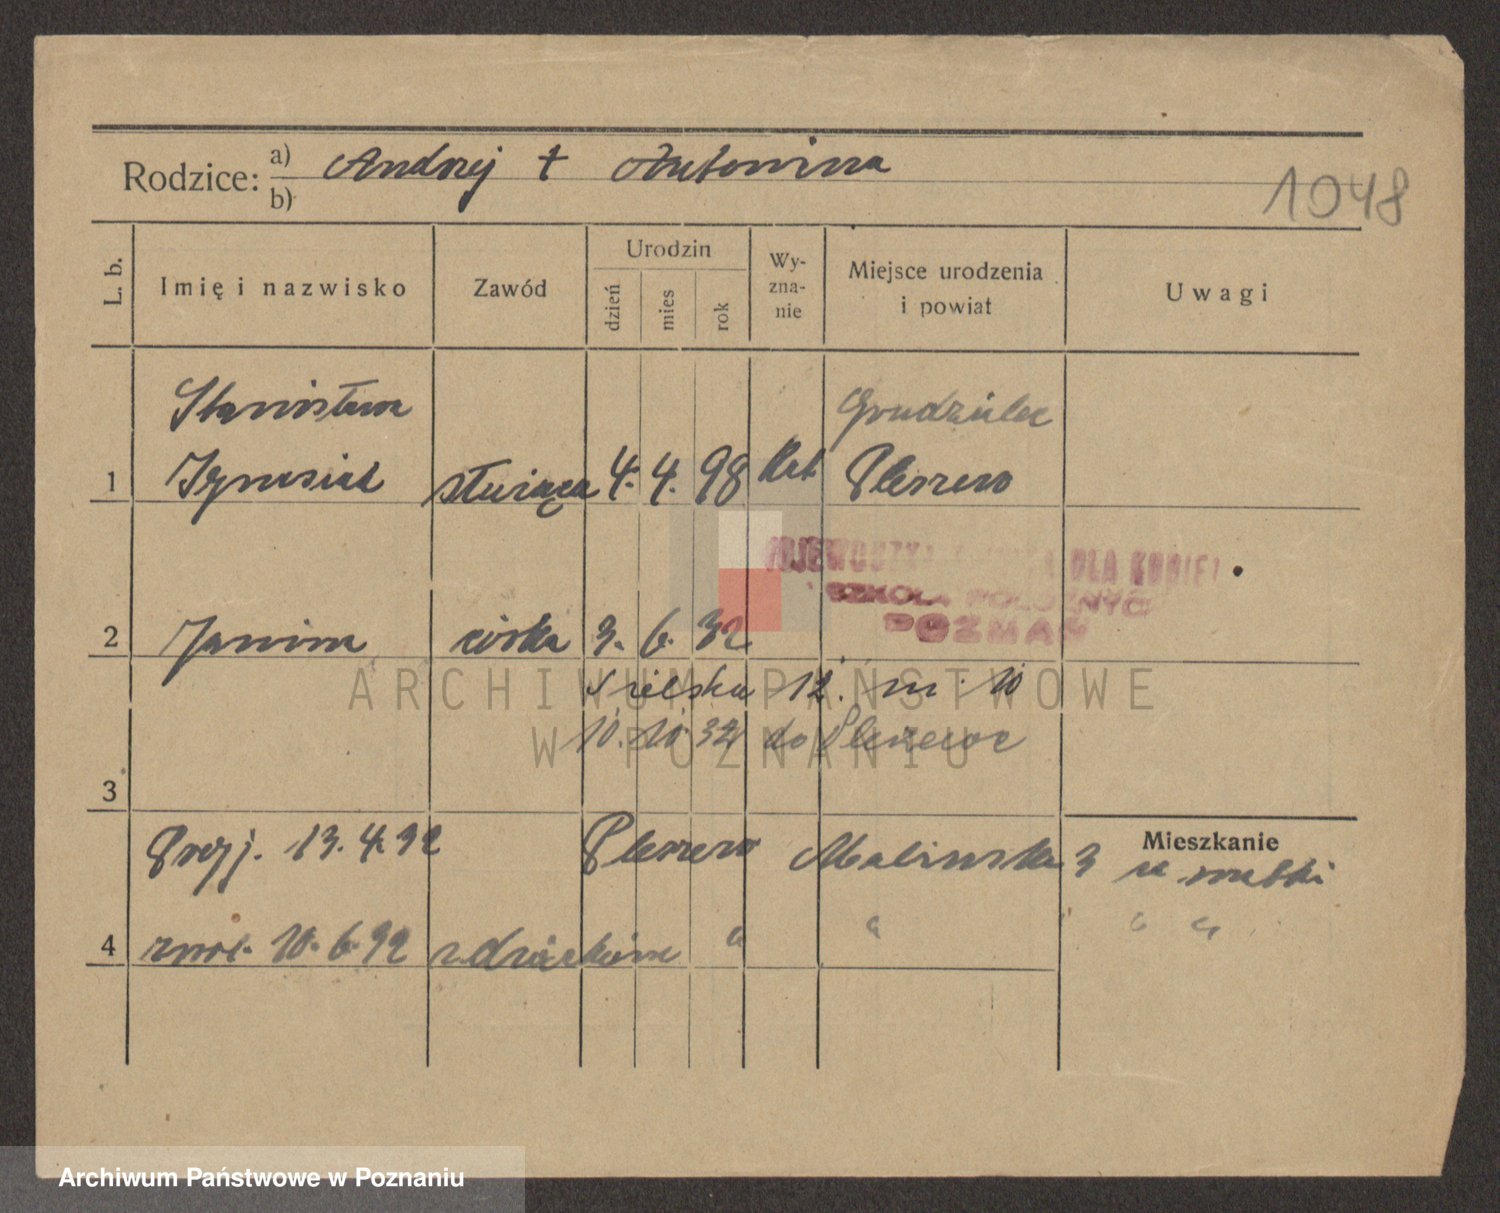 Rodzice: a) Andrzej † Antonina
b)
1048
L. b.
Imię i nazwisko
Zawód
Urodzin
dzień
mies
rok
Wy-
zna-
nie
Miejsce urodzenia
i powiat
Uwagi
Stanisława Grudzielec
1 Ignasiak służąca 4. 4. 98 Kat Pleszew
WOJEWÓDZKA DLA KOBIET
SZKOŁA POŁOŻNYC
POZNAŃ
2 Janina córka 3. 6. 32
12. m. 10
10. 10. 32 do Pleszewa
3
Mieszkanie
Przyj. 13. 4. 32 Pleszew Malińska 3 u matki
4 zwol. 10. 6. 32 z dzieckiem " " " "
ARCHIWUM PAŃSTWOWE
W POZNANIU
Archiwum Państwowe w Poznaniu